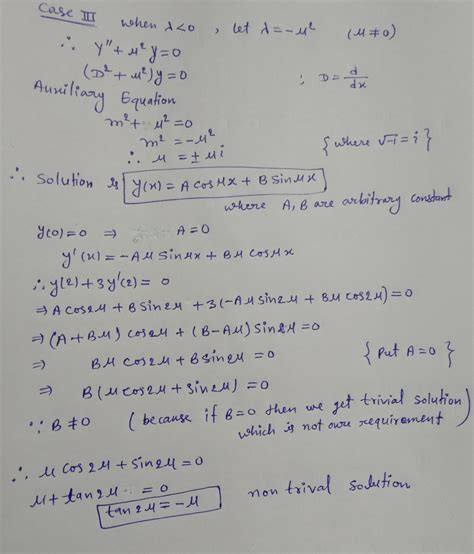 Case III when λ<0, let λ=-μ² (μ≠0)
∴ y''+μ²y=0
(D²+μ²)y=0 ; D=d/dx
Auxiliary Equation
m²+μ²=0
m²=-μ²
∴ μ=±μi {where √-1=i}
∴ Solution is y(x)=A cosμx + B Sinμx
where A, B are arbitrary constant
y(0)=0 ⇒ A=0
y'(x)=-Aμ Sinμx + Bμ Cosμx
∴ y(2)+3y'(2)=0
⇒ A cos2μ + B sin2μ + 3(-Aμ sin2μ + Bμ cos2μ)=0
⇒ (A+Bμ) cos2μ + (B-Aμ) Sin2μ=0
⇒ Bμ cos2μ + B sin2μ=0 {Put A=0}
⇒ B(μ cos2μ + Sin2μ)=0
∵ B≠0 (because if B=0 then we get trivial solution
which is not our requirement)
∴ μ cos2μ + sin2μ=0
μ+tan2μ=0 non trival solution
tan2μ=-μ